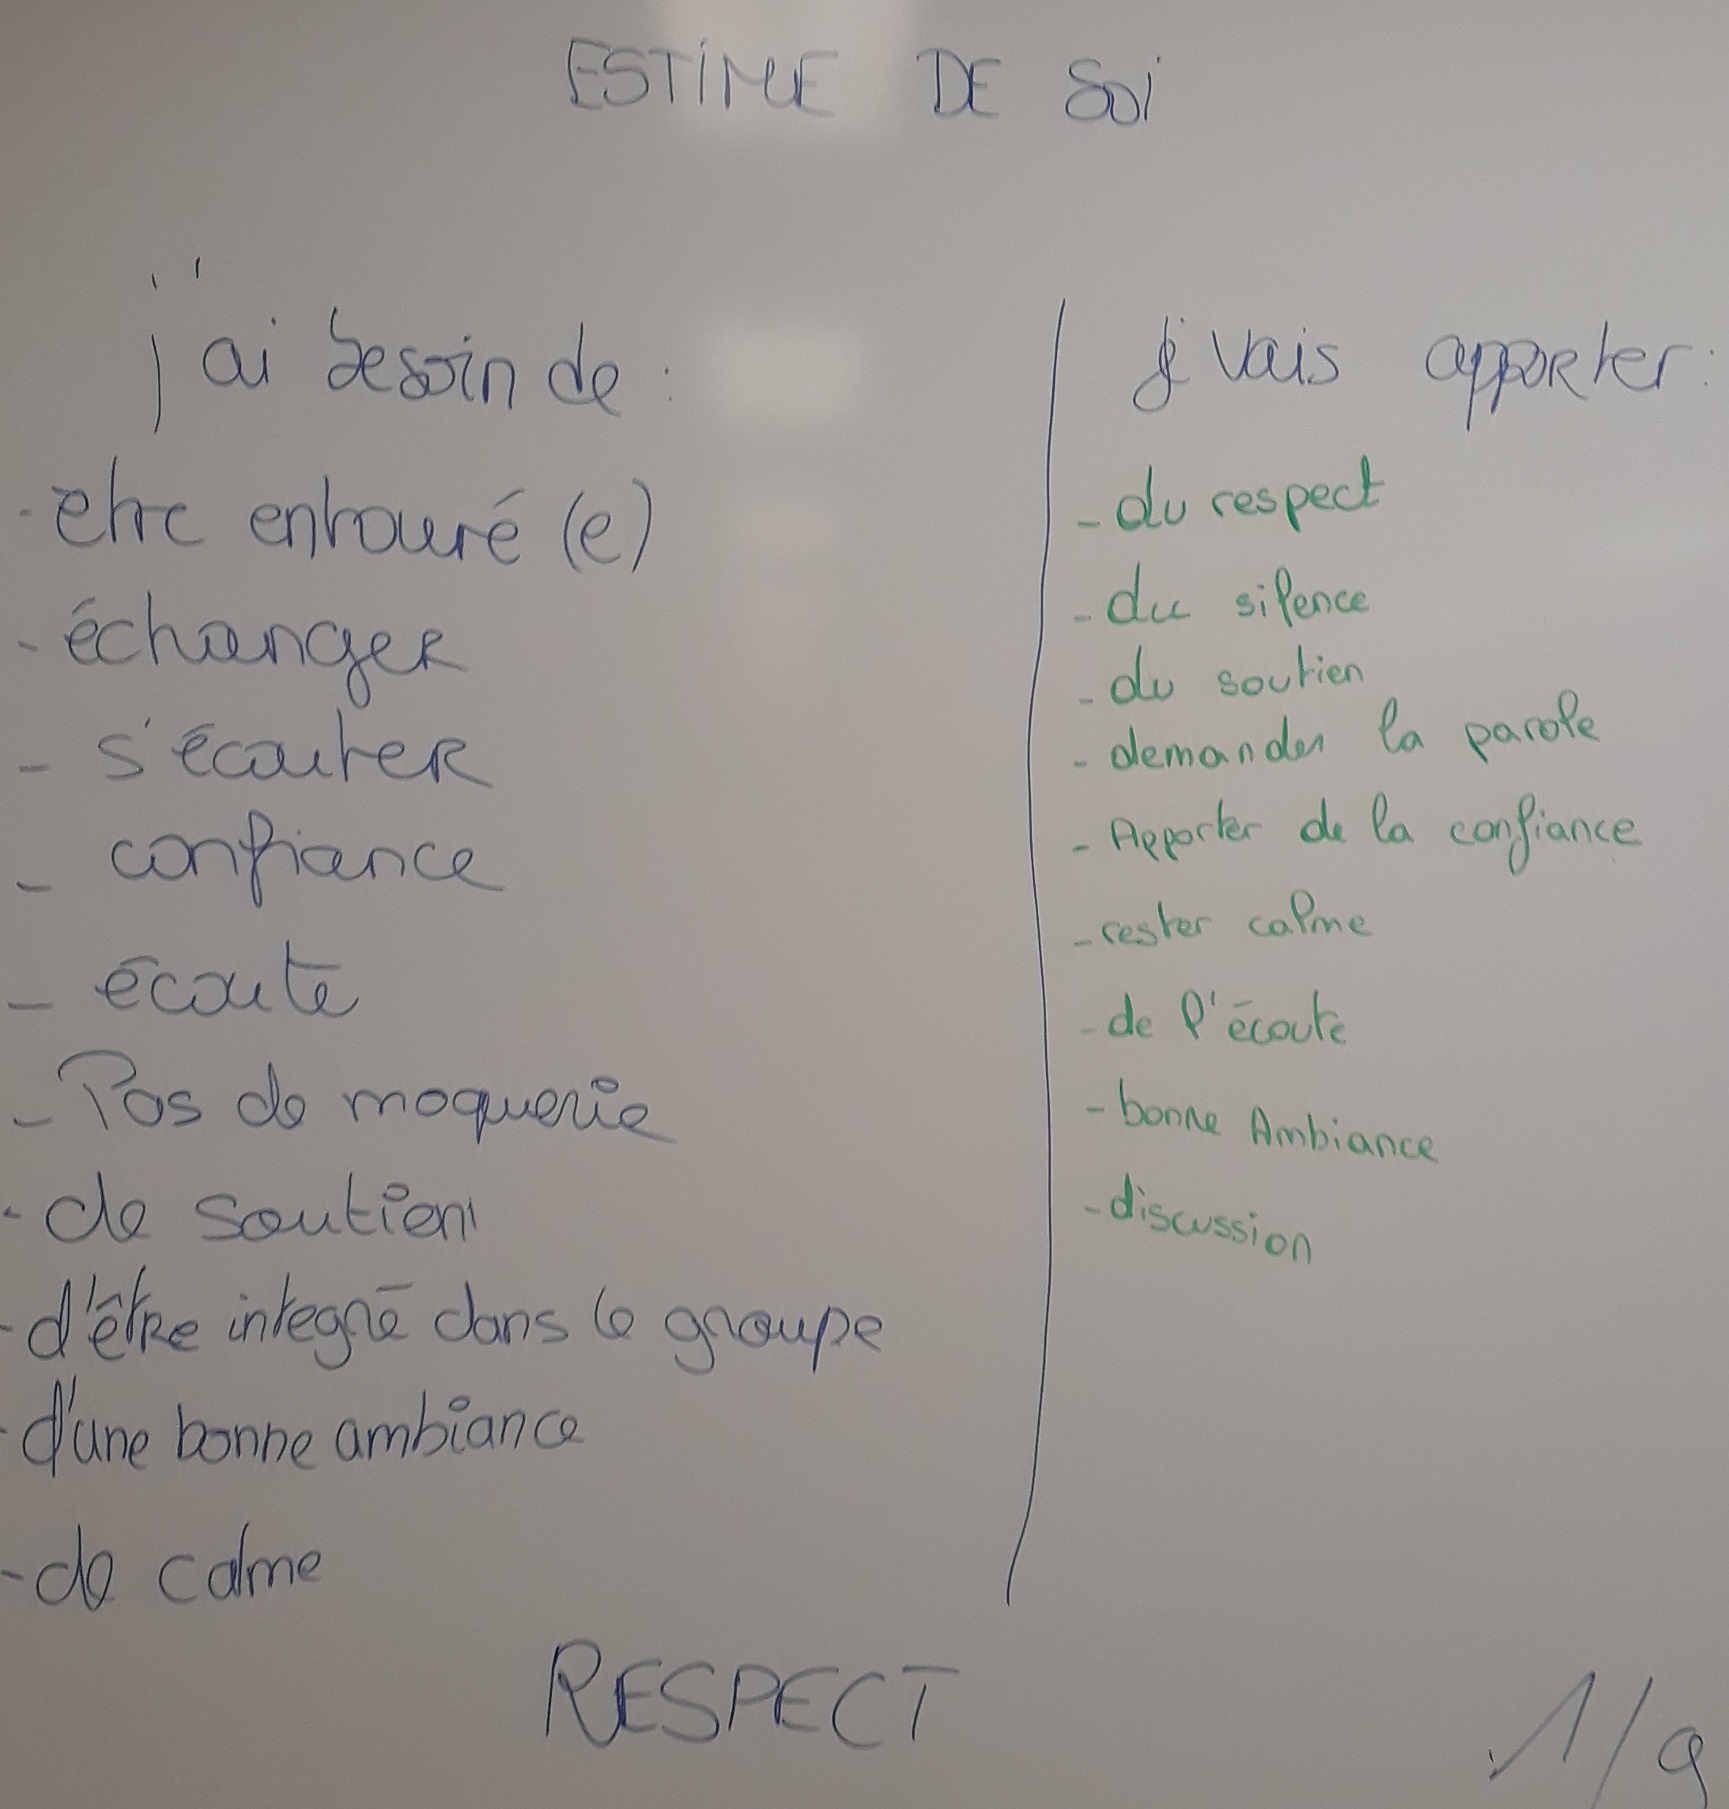 ESTIME DE SOI
j'ai besoin de :
- etre entouré (e)
- échanger
- s'écouter
- confiance
- écoute
- Pas de moquerie
- de soutien
- d'être integré dans le groupe
- d'une bonne ambiance
- de calme
j vais apporter :
- du respect
- du silence
- du soutien
- demander la parole
- Apporter de la confiance
- rester calme
- de l'écoute
- bonne Ambiance
- discussion
RESPECT
1/9